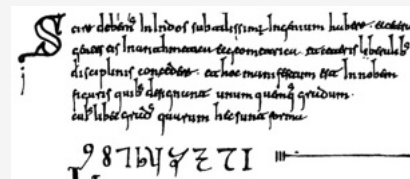 Scire debem̅s In Indos subtilissimu̅ Ingenium habere. et ceteras
gentes eis In arithmetica et geometrica et ceteris
disciplinis concedere. et hoc manifestum est In nobem
figuris quib; designant unum quemq; gradum.
cuiuslibet grad; quarum hec sunt forma
9 8 7 6 5 4 3 2 1